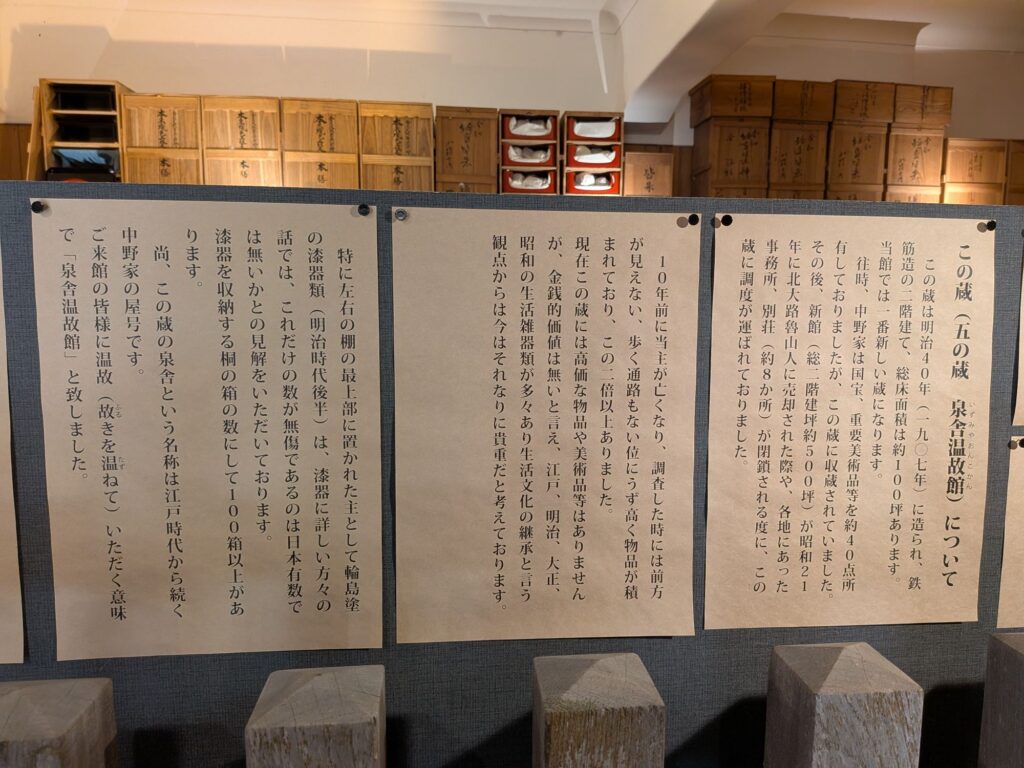 この蔵（五の蔵　泉舎温故館）について
いずみやおんこかん
この蔵は明治40年（一九〇七年）に造られ、鉄
筋造の二階建て、総床面積は約100坪あります。
当館では一番新しい蔵になります。
往時、中野家は国宝、重要美術品等を約40点所
有しておりましたが、この蔵に収蔵されていました。
その後、新館（総二階建坪約500坪）が昭和21
年に北大路魯山人に売却された際や、各地にあった
事務所、別荘（約8か所）が閉鎖される度に、この
蔵に調度が運ばれておりました。
10年前に当主が亡くなり、調査した時には前方
が見えない、歩く通路もない位にうず高く物品が積
まれており、この二倍以上ありました。
現在この蔵には高価な物品や美術品等はありません
が、金銭的価値は無いと言え、江戸、明治、大正、
昭和の生活雑器類が多々あり生活文化の継承と言う
観点からは今はそれなりに貴重だと考えております。
特に左右の棚の最上部に置かれた主として輪島塗
の漆器類（明治時代後半）は、漆器に詳しい方々の
話では、これだけの数が無傷であるのは日本有数で
は無いかとの見解をいただいております。
漆器を収納する桐の箱の数にして100箱以上があ
ります。
尚、この蔵の泉舎という名称は江戸時代から続く
中野家の屋号です。
ご来館の皆様に温故（故きを温ねて）いただく意味
ふる
たず
で「泉舎温故館」と致しました。
本膳
本膳
本膳
本膳